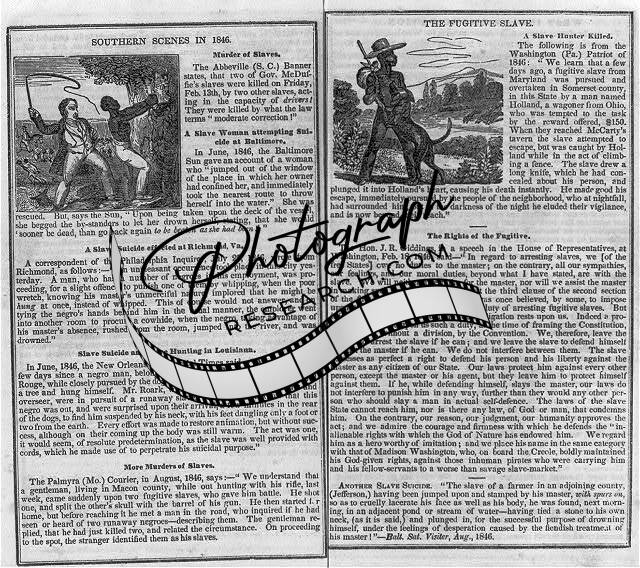 SOUTHERN SCENES IN 1846.
Murder of Slaves.
The Abbeville (S. C.) Banner
states, that two of Gov. McDuf-
fie's slaves were killed on Friday,
Feb. 13th, by two other slaves, act-
ing in the capacity of drivers!
They were killed by what the law
terms "moderate correction!"
A Slave Woman attempting Sui-
cide at Baltimore.
In June, 1846, the Baltimore
Sun gave an account of a woman
who "jumped out of the window
of the place in which her owner
had confined her, and immediately
took the nearest route to throw
herself into the water." She was
rescued. But, says the Sun, "Upon being taken upon the deck of the vessel,
she begged the by-standers to let her drown herself, stating, that she would
'sooner be dead, than go back again to be beaten as she had
A Slave Suicide effected at Richmond, Va.
A correspondent of the Philadelphia Inquirer
Richmond, as follows:—"An unpleasant
terday. A man, who had
ceeding, for a slight offence to punish one of
wretch, knowing his master's unmerciful
hung at once, instead of whipped. This of
tying the negro's hands behind him in the
into another room to procure a cowhide, when the negro, taking advantage of
his master's absence, rushed from the room, jumped river, and was
drowned."
Slave Suicide and Hunting in Louisiana.
In June, 1846, the New Orleans Times said
few days since a negro man, belonging
Rouge, while closely pursued by the dogs
a tree and hung himself. Mr. Roark,
overseer, were in pursuit of a runaway that this
negro was out, and were surprised upon their arrival, in the rear
of the dogs, to find him suspended by his neck, with his feet dangling only a foot or
two from the earth. Every effort was made to restore animation, but without suc-
cess, although on their coming up the body was still warm. The act was one,
it would seem, of resolute predetermination, as the slave was well provided with
cords, which he made use of to perpetrate his suicidal purpose."
More Murders of Slaves.
The Palmyra (Mo.) Courier, in August, 1846, says:—"We understand that
a gentleman, living in Macon county, while out hunting with his rifle, last
week, came suddenly upon two fugitive slaves, who gave him battle. He shot
one, and split the other's skull with the barrel of his gun. He then started for
home, but before reaching it he met a man in the road, who inquired if he had
seen or heard of two runaway negroes—describing them. The gentleman re-
plied, that he had just killed two, and related the circumstance. On proceeding
to the spot, the stranger identified them as his slaves.
THE FUGITIVE SLAVE.
A Slave Hunter Killed.
The following is from the
Washington (Pa.) Patriot of
1846: "We learn that a few
days ago, a fugitive slave from
Maryland was pursued and
overtaken in Somerset county,
in this State by a man named
Holland, a wagoner from Ohio,
who was tempted to the task
by the reward offered, $150.
When they reached McCarty's
tavern the slave attempted to
escape, but was caught by Hol-
land while in the act of climb-
ing a fence. The slave drew
a long knife, which he had con-
cealed about his person, and
plunged it into Holland's heart, causing his death instantly. He made good his
escape, immediately, the people of the neighborhood, who at nightfall,
had surrounded him darkness of the night he eluded their vigilance,
and is now beyond reach."
The Rights of the Fugitive.
Hon. J. R. Giddings, in a speech in the House of Representatives, at
Washington, Feb. 18 said:—"In regard to arresting slaves, we [of the
States] owe no duties to the master; on the contrary, all our sympathies,
and moral duties, beyond what I have stated, are with the
will the master, nor will we assist the master
the third clause of the second section
once believed, by some, to impose
duty of arresting fugitive slaves. But
obligation rests upon us. Indeed a pro-
such a duty, time of framing the Constitution,
without a division, by the Convention. We, therefore, leave the
arrest the slave if he can; and we leave the slave to defend himself
the master if he can. We do not interfere between them. The slave
as perfect a right to defend his person and his liberty against the
master as any citizen of our State. Our laws protect him against every other
person, except the master or his agent, but they leave him to protect himself
against them. If he, while defending himself, slays the master, our laws do
not interfere to punish him in any way, further than they would any other per-
son who should slay a man in actual self-defence. The laws of the slave
State cannot reach him, nor is there any law, of God or man, that condemns
him. On the contrary, our reason, our judgment, our humanity approves the
act; and we admire the courage and firmness with which he defends the "in-
alienable rights with which the God of Nature has endowed him. We regard
him as a hero worthy of imitation; and we place his name in the same category
with that of Madison Washington, who, on board the Creole, boldly maintained
his God-given rights, against those inhuman pirates who were carrying him and
his fellow-servants to a worse than savage slave-market."
ANOTHER SLAVE SUICIDE. "The slave of a farmer in an adjoining county,
(Jefferson,) having been jumped upon and stamped by his master, with spurs on,
so as to cruelly lacerate his face as well as his body, he was found, next morn-
ing, in an adjacent pond or stream of water—having tied a stone to his own
neck, (as it is said,) and plunged in, for the successful purpose of drowning
himself, under the feelings of desperation caused by the fiendish treatment of
his master!"—Balt. Sat. Visiter, Aug., 1846.
Photograph
RESEARCH.COM